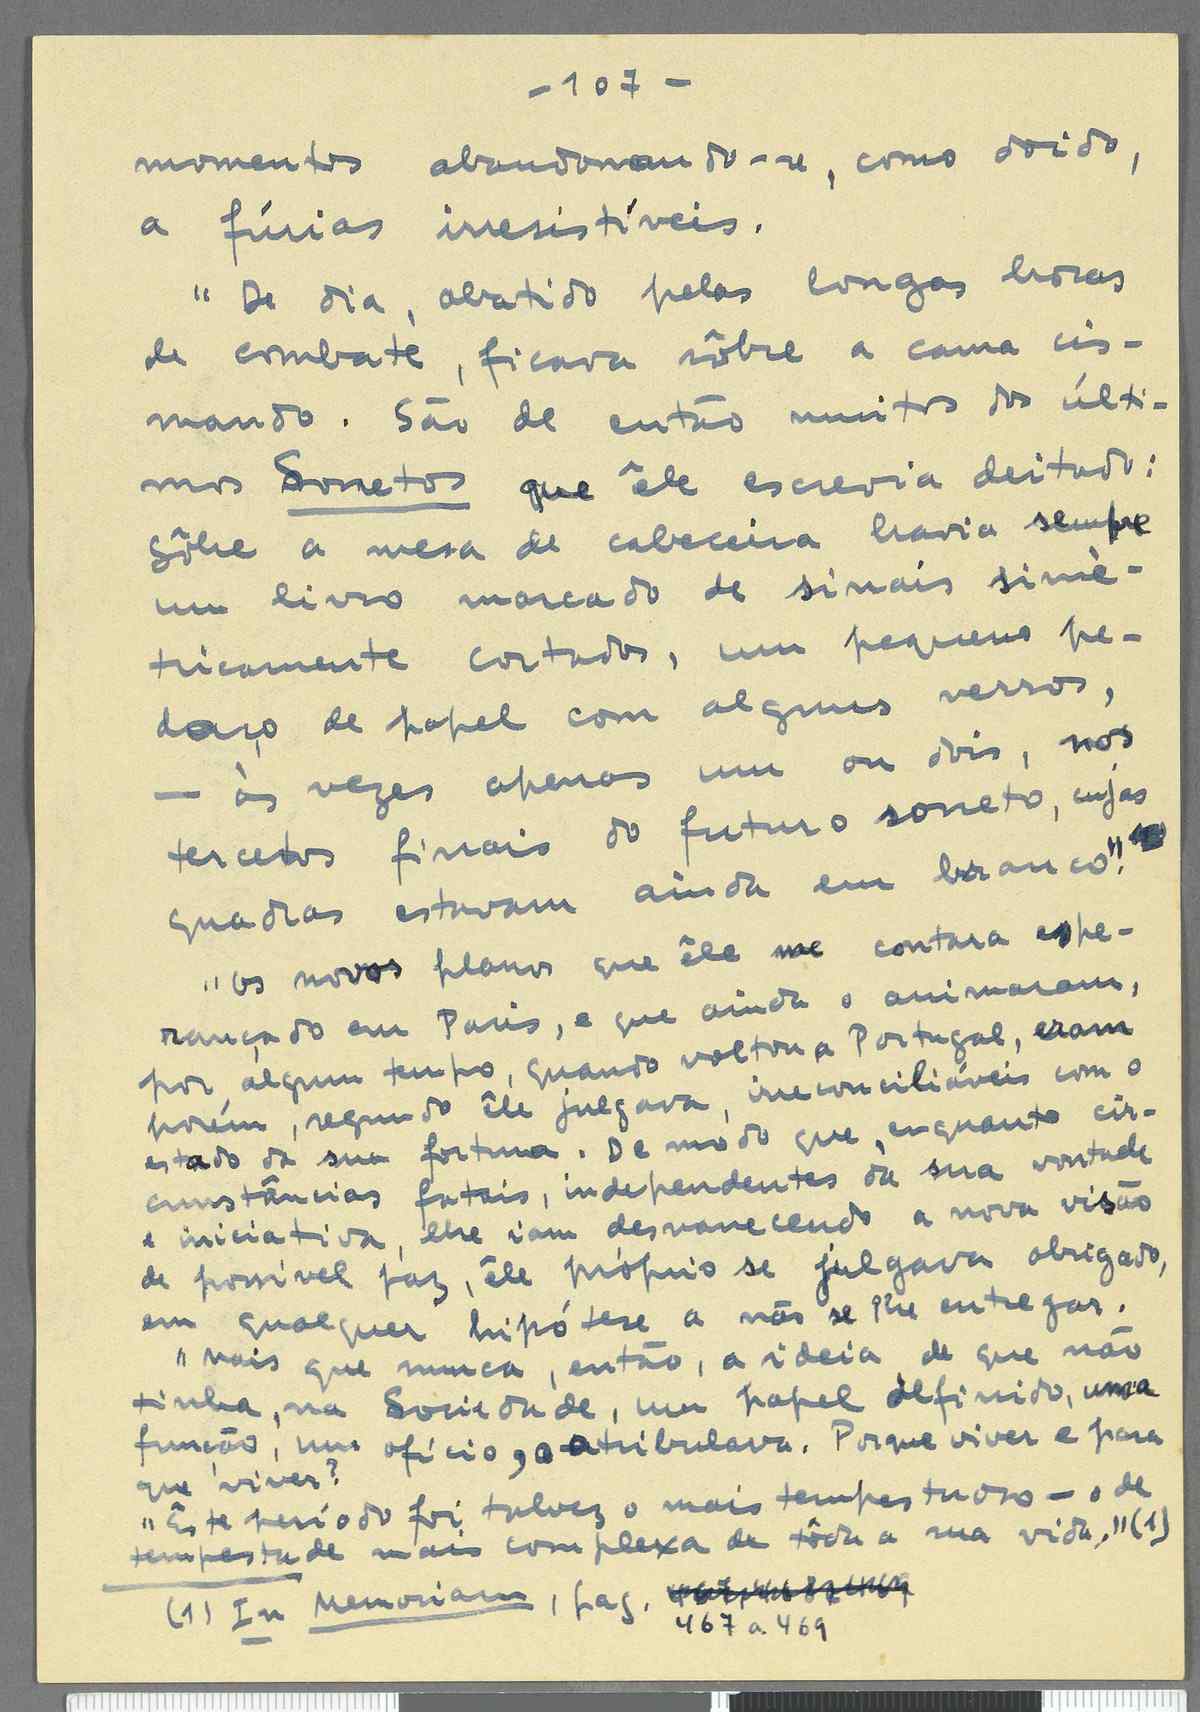 - 107 -
momentos abandonando-se, como doido,
a fúrias irresistíveis.
"De dia, abatido pelas longas horas
de combate, ficava sôbre a cama cis-
mando. São de então muitos dos últi-
mos Sonetos que êle escrevia deitado:
sôbre a mesa de cabeceira havia sempre
um livro marcado de sinais simè-
tricamente cortados, um pequeno pe-
daço de papel com alguns versos,
— às vezes apenas um ou dois, nos
tercetos finais do futuro soneto, cujas
quadras estavam ainda em branco".
"Os novos planos que êle me contara espe-
rançado em Paris, e que ainda o animaram,
por algum tempo, quando voltou a Portugal, eram
porém, segundo êle julgava, irreconciliáveis com o
estado da sua fortuna. De modo que, enquanto cir-
cunstâncias fatais, independentes da sua vontade
e iniciativa, lhe iam desvanecendo a nova visão
de possível paz, êle próprio se julgava obrigado,
em qualquer hipótese a não se lhe entregar.
"Mais que nunca, então, a ideia de que não
tinha, na Sociedade, um papel definido, uma
função, um ofício, o atribulava. Porque viver e para
que viver?
"Êste período foi talvez o mais tempestuoso — o de
tempestade mais complexa de tôda a sua vida." (1)
(1) In Memoriam, pag.
467 a 469